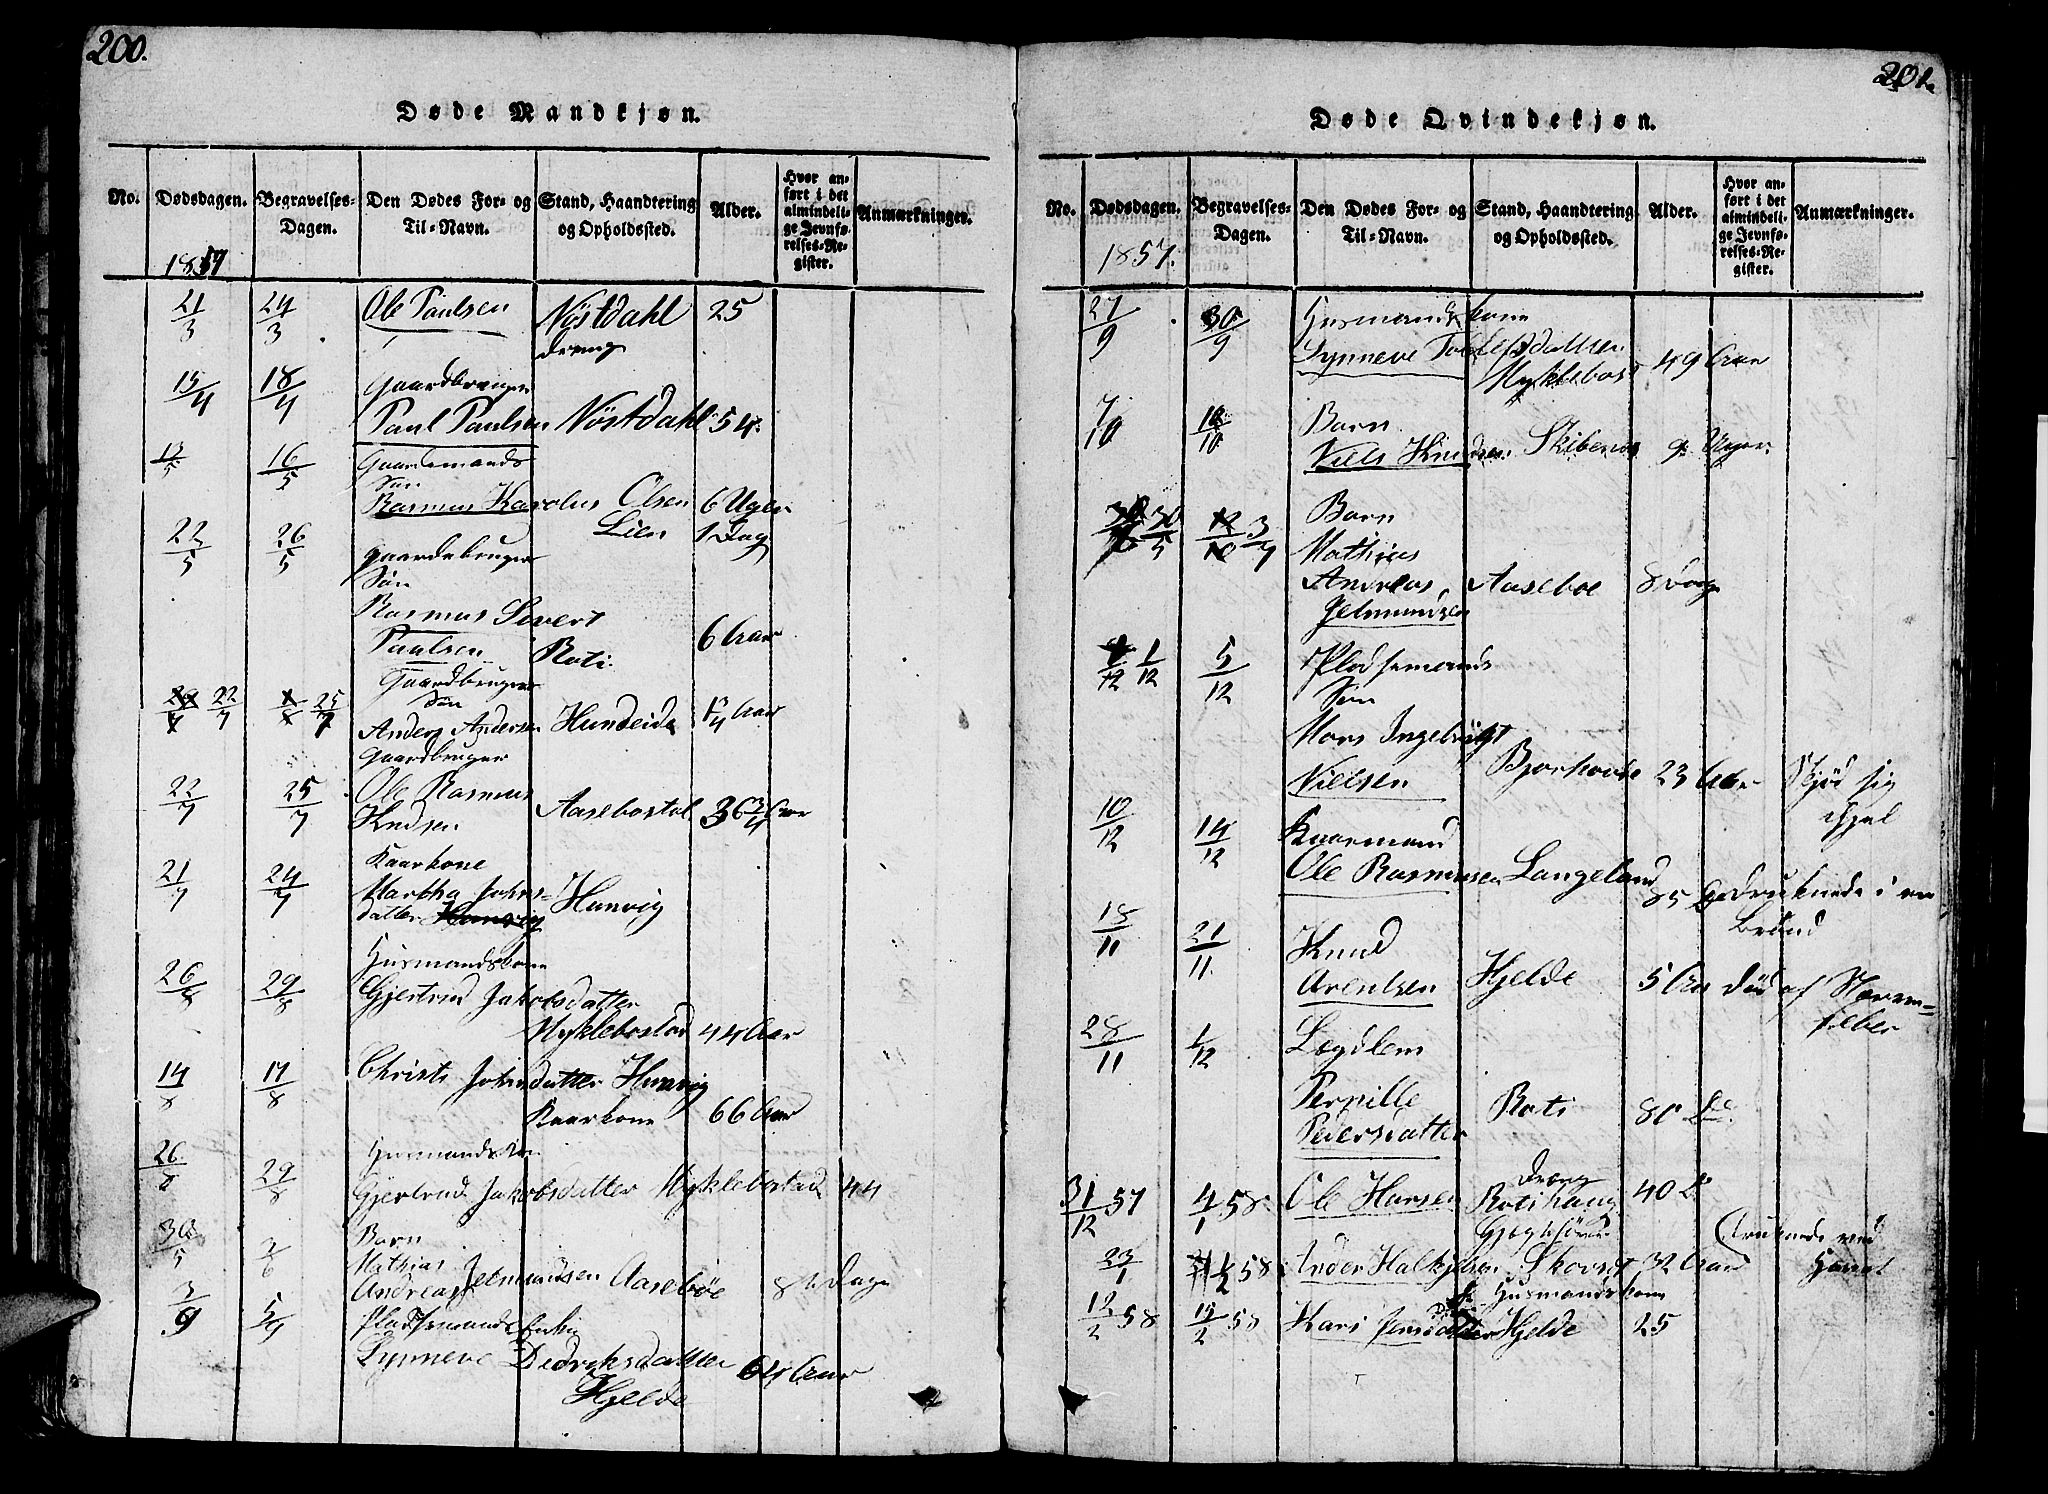 200.
Døde Mandkjøn.
No. Dødsdagen. Begravelses-Dagen. Den Dødes For- og Til-Navn. Stand, Haandtering og Opholdssted. Alder. Hvor anført i det almindelige Jevnførelses-Register. Anmærkninger.
1857
21/3 24/3 Ole Paulsen Nöstdahl 25
dreng
15/4 18/4 Gaardbruger
Paul Paulsen Nöstdahl 54.
13/5 16/5 Gaardmands
Søn
Rasmus Karolus Olsen 6 Uger
Lien 1 Dag
22/5 26/5 gaardebruger
Søn
Rasmus Sivert
Paulsen Roti. 6 Aar
Gaardbruger
Søn
22/7 25/7 Anders Andersen Hundeide 1/4 Aar
gaardbruger
22/7 25/7 Ole Rasmus
Knudsen Aasebostøl 36 3/4 Aar
Kaarkone
21/7 24/7 Martha Johns-
datter Hunvig Hunvig
Husmandskone
26/8 29/8 Gjertrud Jakobsdatter
Myklebostad 44 Aar
14/8 17/8 Christi Johnsdatter Hunvig
Kaarkone 66 Aar
Husmandskone
26/8 29/8 Gjertrud Jakobsdatter Myklebostad 44
30/5 3/6 Barn
Mathias
Andreas Jetmundsen Aasebøe 8 Dage
3/9 5/9 Pladsemands Enke
Synneve Dedriksdatter 64 Aar
Hjelde
201.
Døde Qvindekjøn.
No. Dødsdagen. Begravelses-Dagen. Den Dødes For- og Til-Navn. Stand, Haandtering og Opholdssted. Alder. Hvor anført i det almindelige Jevnførelses-Register. Anmærkninger.
1857.
27/9 30/9 Husmandskone
Synneve
Myklebost 49 Aar
7/10 10/10 Barn
Niels Knudsen Skibenes 9 Uger.
30/5 3/7 Barn
Mathias
Andreas Aaseboe 8 Dage
Jetmundsen
1/12 5/12 Pladsemands
Søn
Mons Ingebrigt
Nielsen Bjorhovde 23 Aar Skjød sig
ihjel
10/12 14/12 Kaarmand
Ole Rasmusen Langeland 85 Gedruknede i en
Brönd
18/11 21/11 Knud
Arentsen Hjelde 5 Aar Död af Nerve-
feber
28/11 1/12 Lægdlem
Pernille
Pedersdatter Roti 80 do
Dreng
31/12 57 4/1 58 Ole Hansen Rotihaug 40 do
23/1 1/2 58 Anders Halkjelsen Skovset 32 Aar druknede ved
Husmandskone
12/2 58 15/2 58 Kari Jensdatter Hjelde 25